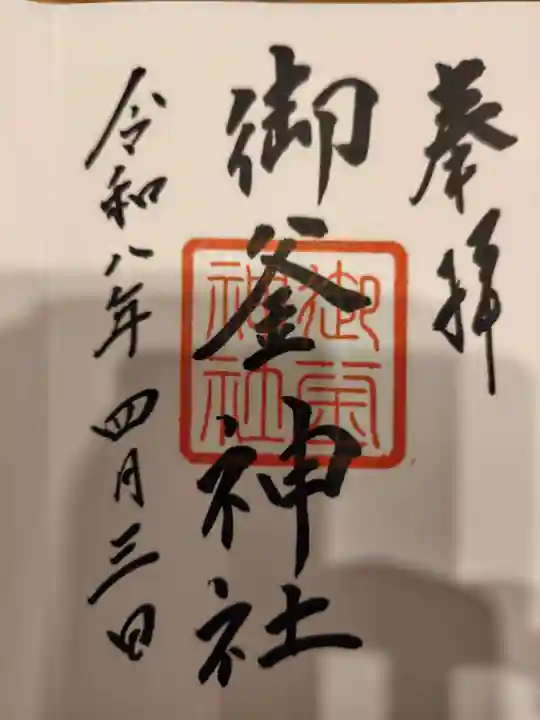 奉拝
御釜神社
御釜神社
令和八年四月三日